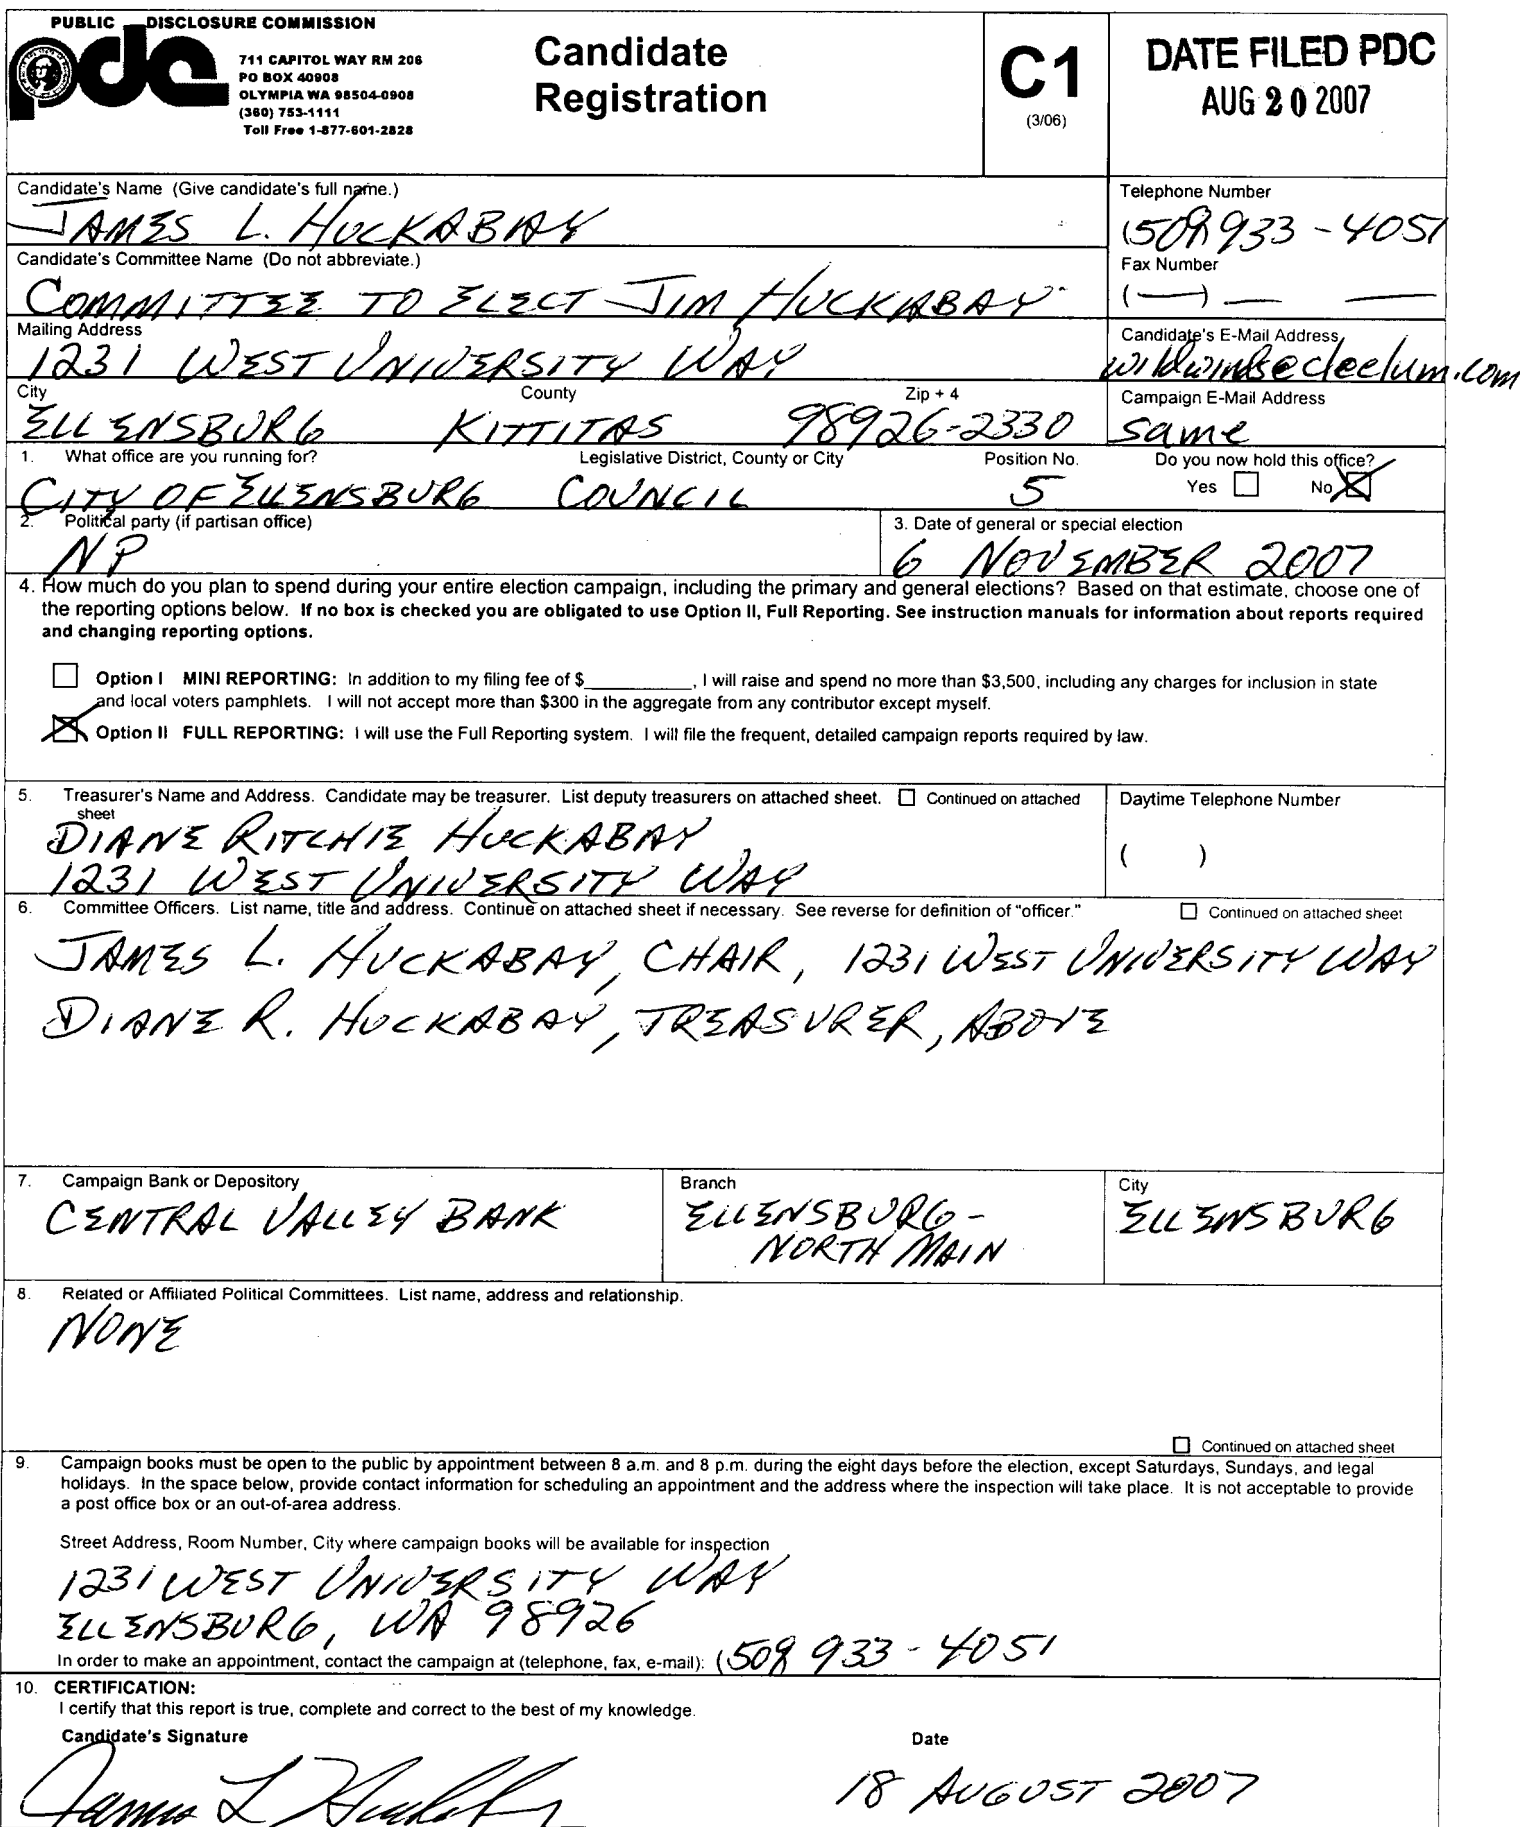 PUBLIC DISCLOSURE COMMISSION
pdc
711 CAPITOL WAY RM 206
PO BOX 40908
OLYMPIA WA 98504-0908
(360) 753-1111
Toll Free 1-877-601-2828
Candidate
Registration
C1
(3/06)
DATE FILED PDC
AUG 20 2007
Candidate's Name (Give candidate's full name.)
JAMES L. HUCKABAY
Telephone Number
(509) 933-4051
Candidate's Committee Name (Do not abbreviate.)
COMMITTEE TO ELECT JIM HUCKABAY
Fax Number
(—) — —
Mailing Address
1231 WEST UNIVERSITY WAY
Candidate's E-Mail Address
wildwinds@cleelum.com
City County Zip + 4
ELLENSBURG KITTITAS 98926-2330
Campaign E-Mail Address
same
1. What office are you running for? Legislative District, County or City Position No. Do you now hold this office?
CITY OF ELLENSBURG COUNCIL 5 Yes No
2. Political party (if partisan office)
NP
3. Date of general or special election
6 NOVEMBER 2007
4. How much do you plan to spend during your entire election campaign, including the primary and general elections? Based on that estimate, choose one of
the reporting options below. If no box is checked you are obligated to use Option II, Full Reporting. See instruction manuals for information about reports required
and changing reporting options.
Option I MINI REPORTING: In addition to my filing fee of $__________, I will raise and spend no more than $3,500, including any charges for inclusion in state
and local voters pamphlets. I will not accept more than $300 in the aggregate from any contributor except myself.
Option II FULL REPORTING: I will use the Full Reporting system. I will file the frequent, detailed campaign reports required by law.
5. Treasurer's Name and Address. Candidate may be treasurer. List deputy treasurers on attached sheet. Continued on attached
sheet
DIANE RITCHIE HUCKABAY
1231 WEST UNIVERSITY WAY
Daytime Telephone Number
( )
6. Committee Officers. List name, title and address. Continue on attached sheet if necessary. See reverse for definition of "officer." Continued on attached sheet
JAMES L. HUCKABAY, CHAIR, 1231 WEST UNIVERSITY WAY
DIANE R. HUCKABAY, TREASURER, ABOVE
7. Campaign Bank or Depository
CENTRAL VALLEY BANK
Branch
ELLENSBURG-
NORTH MAIN
City
ELLENSBURG
8. Related or Affiliated Political Committees. List name, address and relationship.
NONE
Continued on attached sheet
9. Campaign books must be open to the public by appointment between 8 a.m. and 8 p.m. during the eight days before the election, except Saturdays, Sundays, and legal
holidays. In the space below, provide contact information for scheduling an appointment and the address where the inspection will take place. It is not acceptable to provide
a post office box or an out-of-area address.
Street Address, Room Number, City where campaign books will be available for inspection
1231 WEST UNIVERSITY WAY
ELLENSBURG, WA 98926
In order to make an appointment, contact the campaign at (telephone, fax, e-mail): (509) 933-4051
10. CERTIFICATION:
I certify that this report is true, complete and correct to the best of my knowledge.
Candidate's Signature Date
James L Huckabay 18 AUGUST 2007